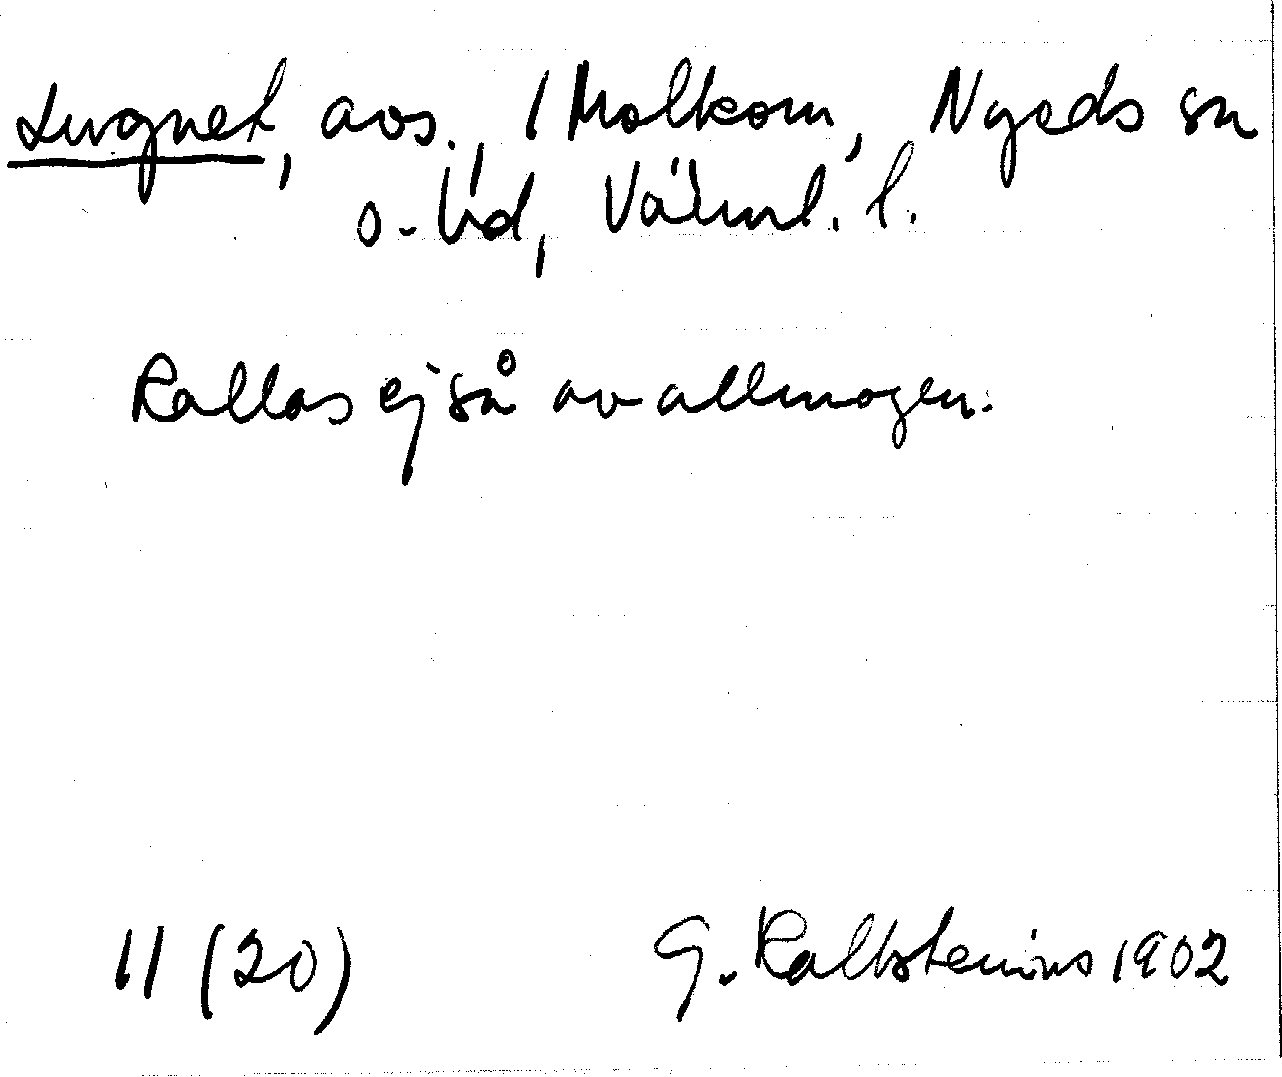 Lugnet, avs., 1 Molkom, Nyeds sn
o. hd, Värml. l.
Kallas ej så av allmogen.
11 (20) G. Kallstenius 1902